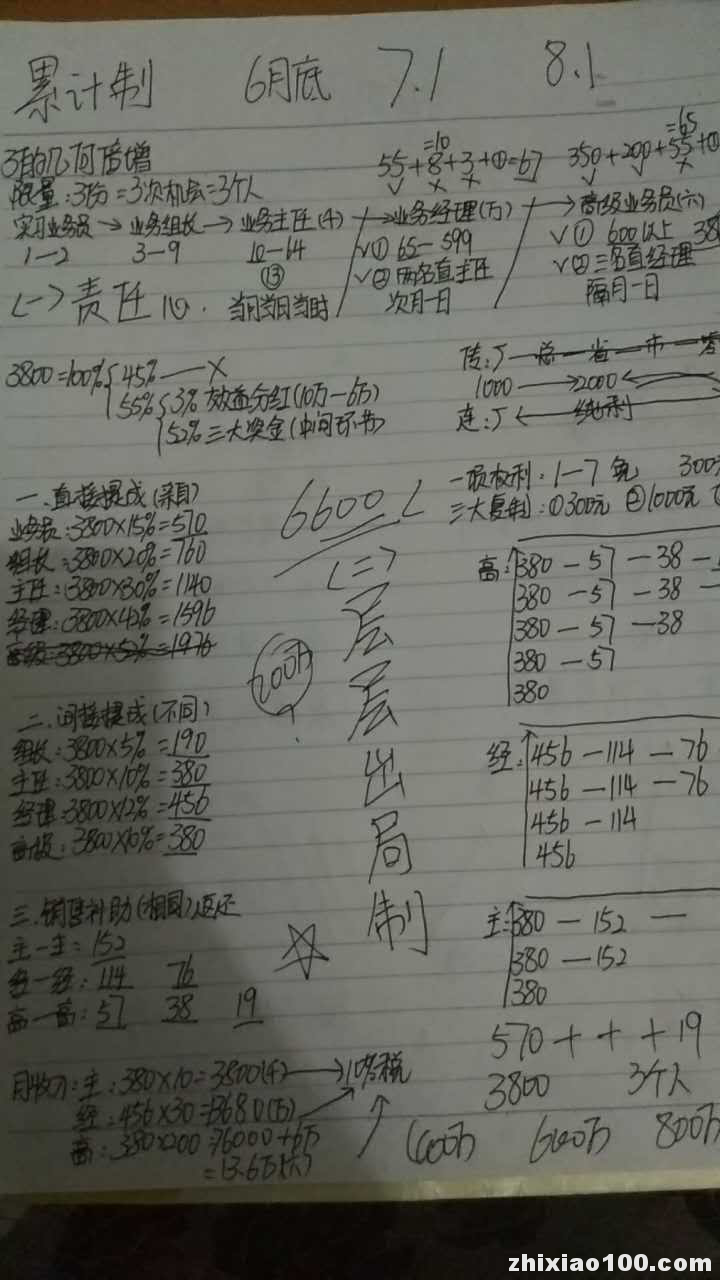 累计制 6月底 7.1 8.1
3的几何倍增
限量:3份=3次机会=3个人
=10
55+8+3+①=67
=65
350+200+55+①
实习业务员→业务组长→业务主任(千)→业务经理(万)→高级业务员(六)
1—2 3—9 10—64 ①65—599 ①600以上 38
⑬ ②两名直主任 ②三名直经理
(一)责任心. 当月当日当时 次月一日 隔月一日
3800=100% 45%——X
55% 3%效益分红(10万—6万)
52%三大奖金(中间环节)
传:厂—总—省—市—零
1000→2000
连:厂 纯利
6600
一损权利:1—7免 300
三大复制:①300元 ②1000元
一.直接提成(亲自)
业务员:3800×15%=570
组长:3800×20%=760
主任:3800×30%=1140
经理:3800×42%=1596
高级:3800×52%=1976
(二)层层出局制
200万
高:380—57—38—
380—57—38—
380—57—38
380—57
380
二.间接提成(不同)
组长:3800×5%=190
主任:3800×10%=380
经理:3800×12%=456
高级:3800×10%=380
经:456—114—76
456—114—76
456—114
456
三.销售补助(相同)返还
主—主:152
经—经:114 76
高—高:57 38 19
主:380—152—
380—152
380
570+ + +19
3800 3个人
月收入:主:380×10=3800(千)→10%税
经:456×30=13680(万)
高:380×200=76000+6万
=13.6万(六)
600万 800万
zhixiao100.com